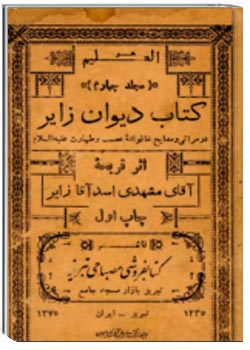 هو
العلیم
(مجلد چهارم)
کتاب دیوان زایر
در مراثی و مدایح خانوادهٔ عصمت و طهارت علیه السلام
اثر قریحهٔ
آقای مشهدی اسدآقا زایر
چاپ اول
ناشر
کتابفروشی مصباحی تبریز
تبریز بازار مسجد جامع
۱۳۳۵ تبریز - ایران ۱۳۷۵